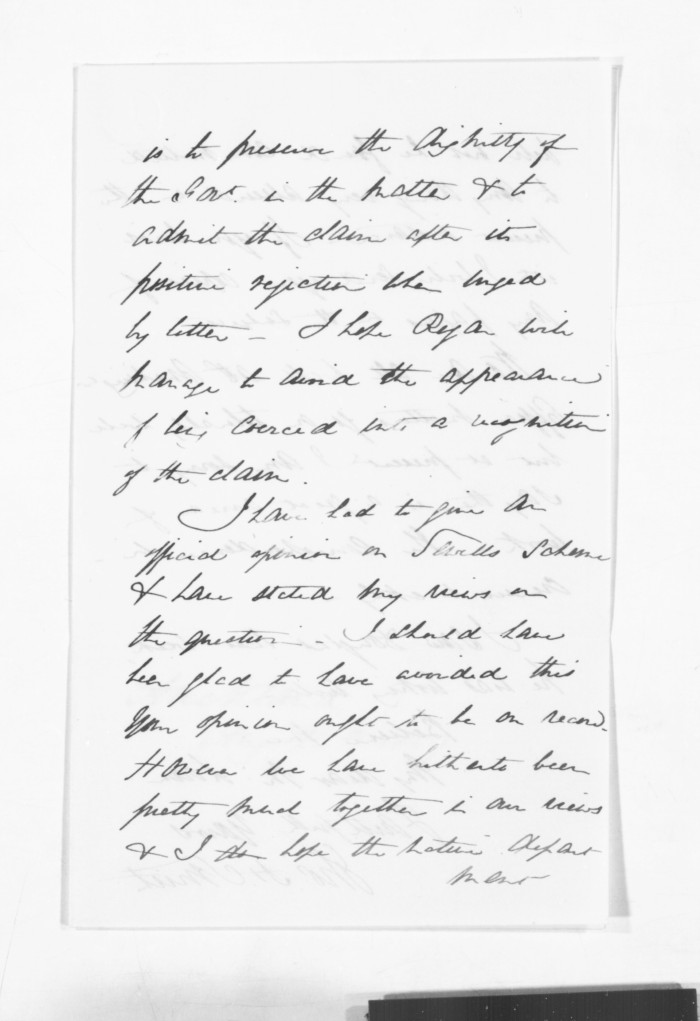 is to preserve the dignity of
the Govt. in the matter & to
admit the claim after its
positive rejection when urged
by letter - I hope Regan will
manage to avoid the appearance
of being coerced into a recognition
of the claim.
I have had to give an
official opinion on Scheme
& have stated my views on
the question - I should have
been glad to have avoided this
Your opinion ought to be on record.
However we have hitherto been
pretty much together in our views
& I hope the Native Depart
ment